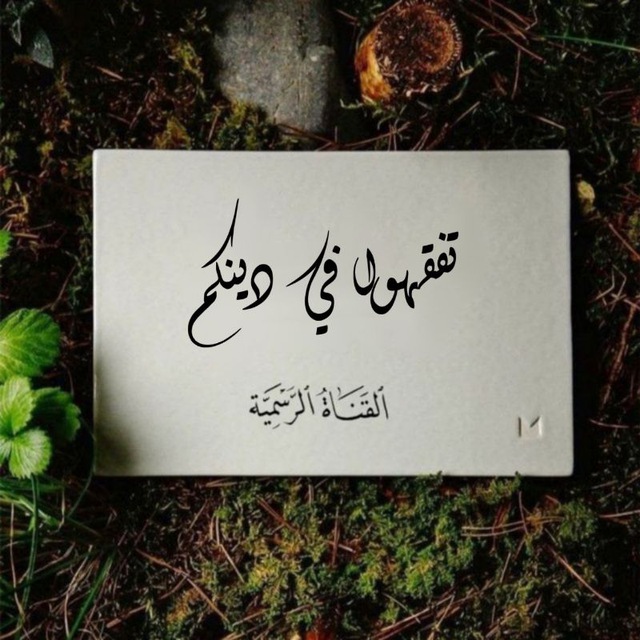 تفقهوا في دينكم
ٱلقَنَاةُ ٱلرَسْمِيَة